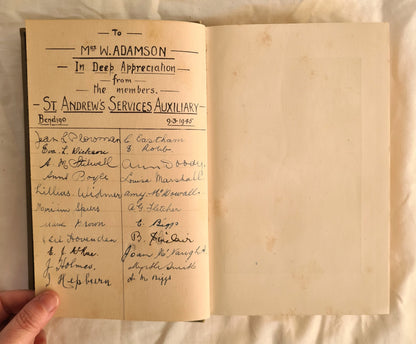 To
Mrs W. ADAMSON
In Deep Appreciation
from
the members.
ST ANDREW'S SERVICES AUXILIARY
Bendigo 9-3-1945
Jean L Plowman C Eastham
Eva. L. Dickson E Robb
A M Stilwell Ann Doodie
Anne Boyle Louisa Marshall
Lillias Widmer Amy McDowall
Speirs A G Fletcher
Brown E Biggs
Hovenden B. Sinclair
E. J. Joan McNaught
J Holmes. Myrtle Quirk
J Hepburn A M Biggs